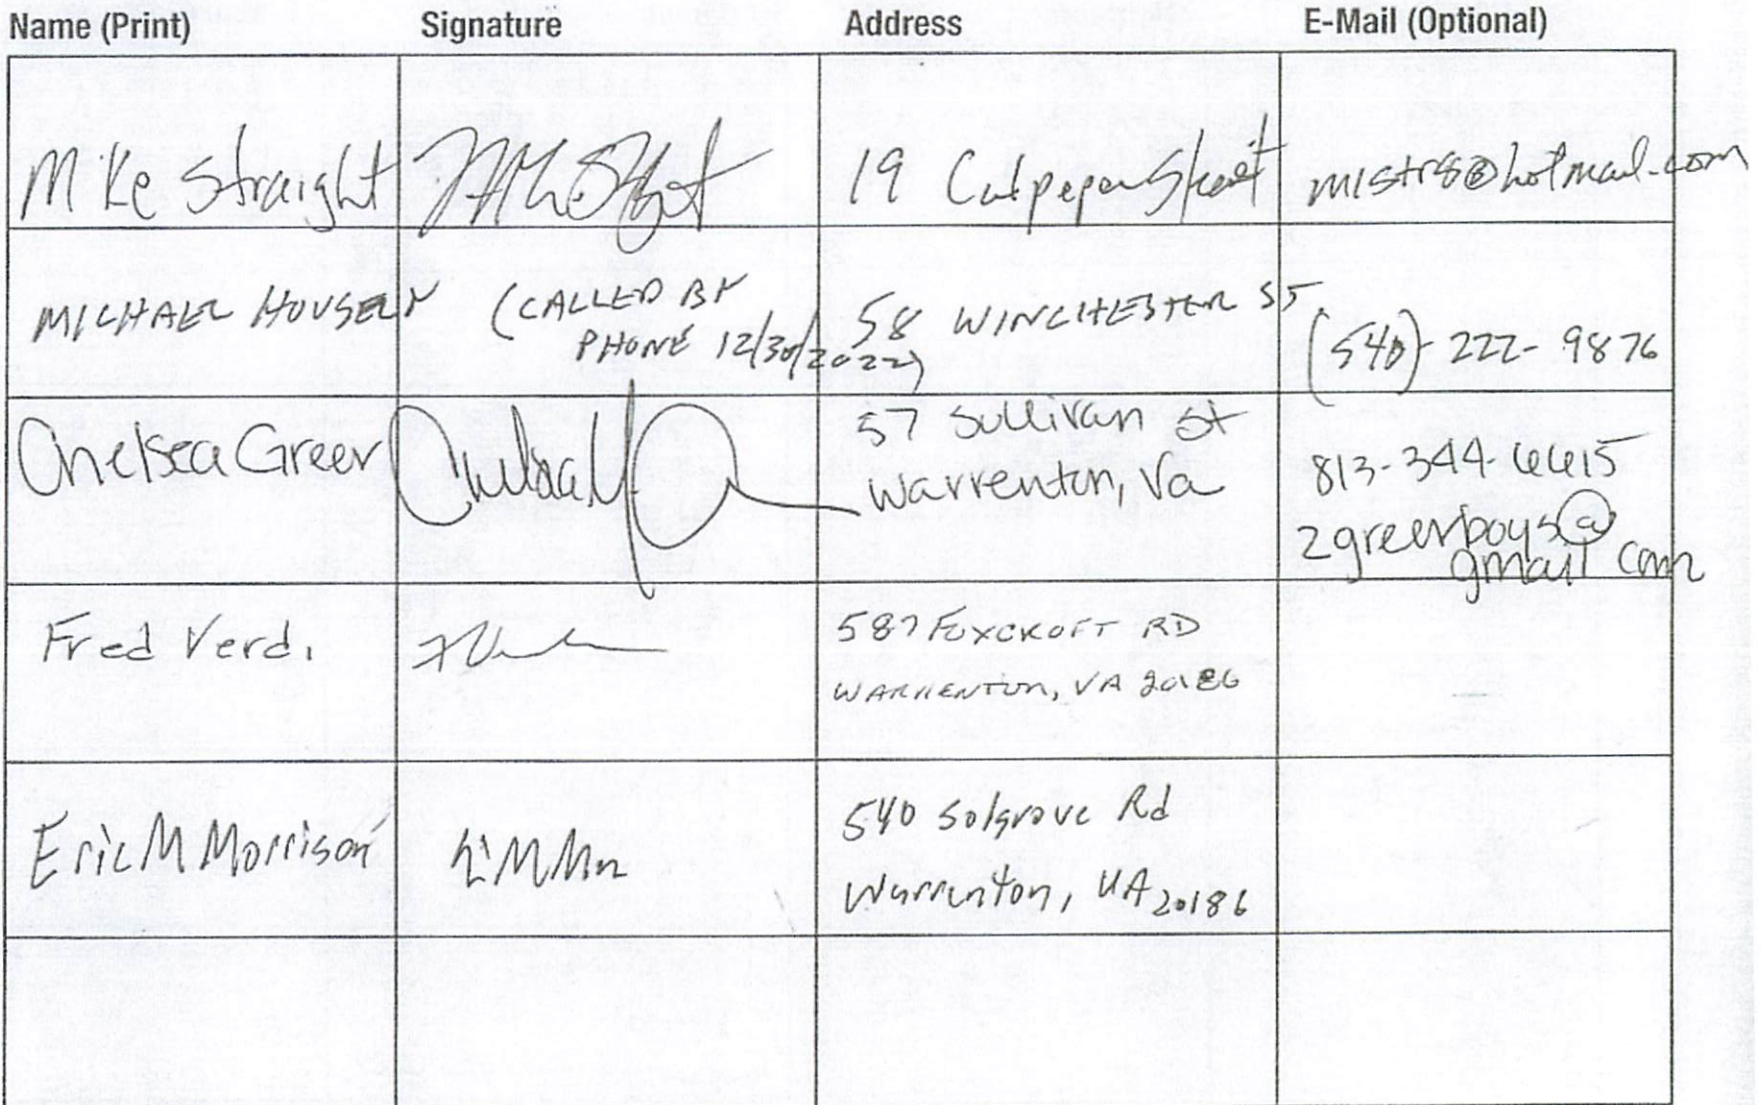 Name (Print) Signature Address E-Mail (Optional)
Mike Straight 19 Culpeper Street mistr8@hotmail.com
MICHAEL HOUSELY (CALLED BY 58 WINCHESTER ST
PHONE 12/30/2022) (540)-222-9876
Chelsea Greer 57 Sullivan St
Warrenton, Va 813-344-6615
2greerboys@
gmail com
Fred Verd. 587 FOXCROFT RD
WARRENTON, VA 20186
Eric M Morrison 540 Solgrove Rd
Warrenton, VA 20186